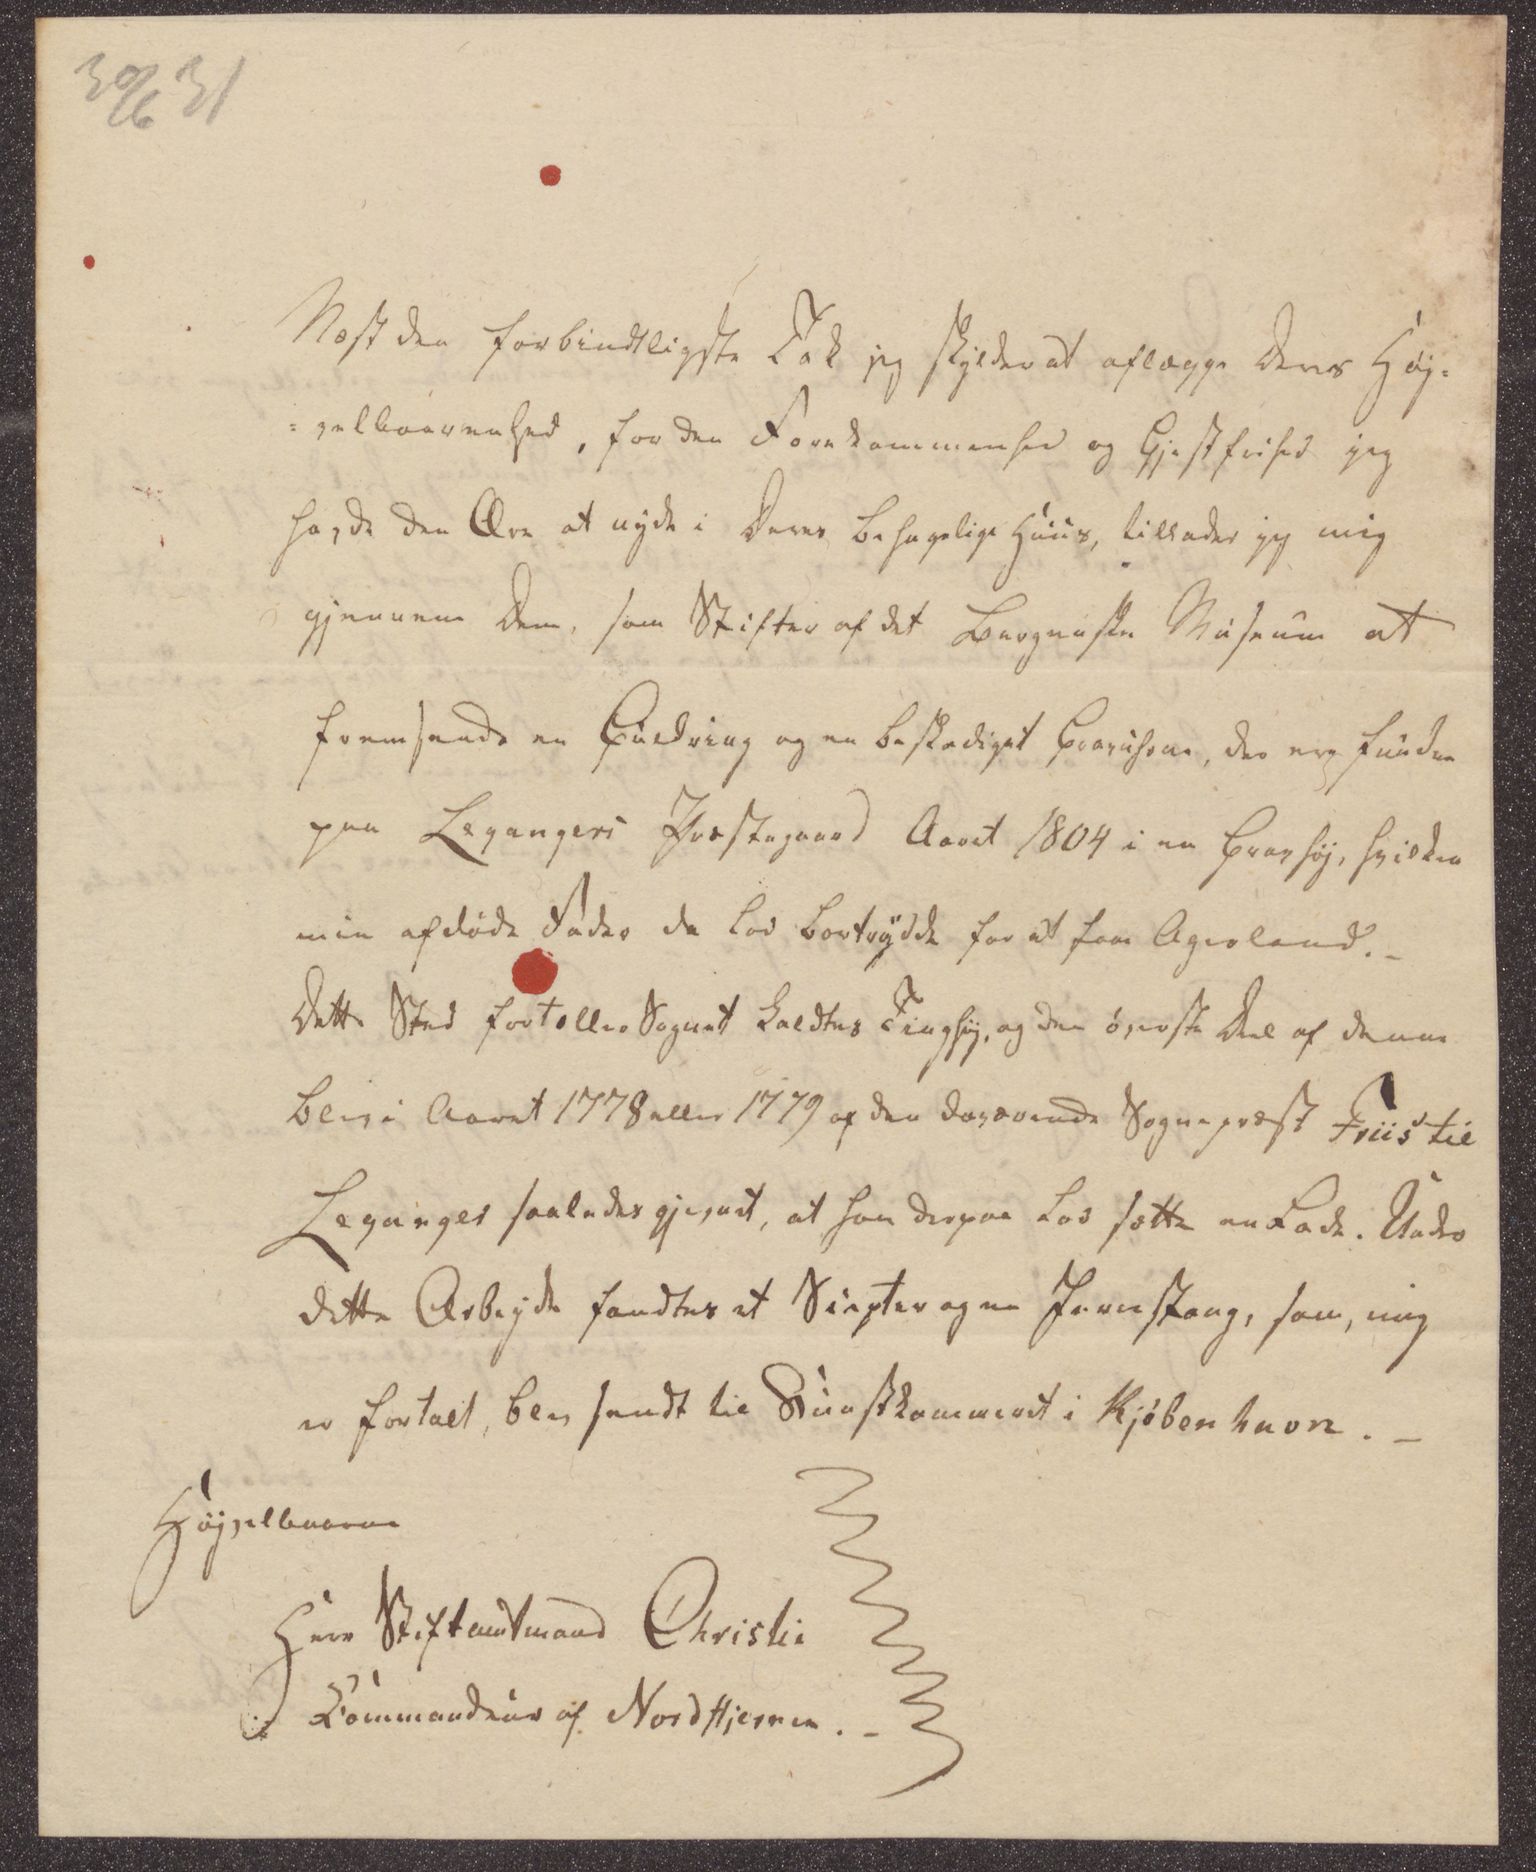 30/6 31
Næst den forbindtligste Tak jeg skylder at aflægge Deres Høj-
=velbaarenhed, for den Forekommenhed og Gjestfrihed jeg
havde den Ære at nyde i Deres behagelige Huus, tillader jeg mig
gjennem Dem, som Stifter af det Bergenske Museum at
fremsende en Guldring og en beskadiget Gravurne, der ere funden
paa Legangers Præstegaard Aaret 1804 i en Gravhøj, hvilken
min afdøde Fader da lod bortrydde for at faae Agerland._
Dette Sted fortæller Sagnet kaldtes Tinghøj, og den øverste Deel af denne
blev i Aaret 1778 eller 1779 af den daværende Sognepræst Friis til
Leganger saaledes gjevnet, at han derpaa lod sætte en Lade. Under
dette Arbejde fandtes et Scepter og en Jernstang, som, mig
er fortalt, blev sendt til Kunstkammeret i Kjöbenhavn._
Højvelbaarne
Herr Stiftamtmand Christie
Kommandeur af Nordstjernen._